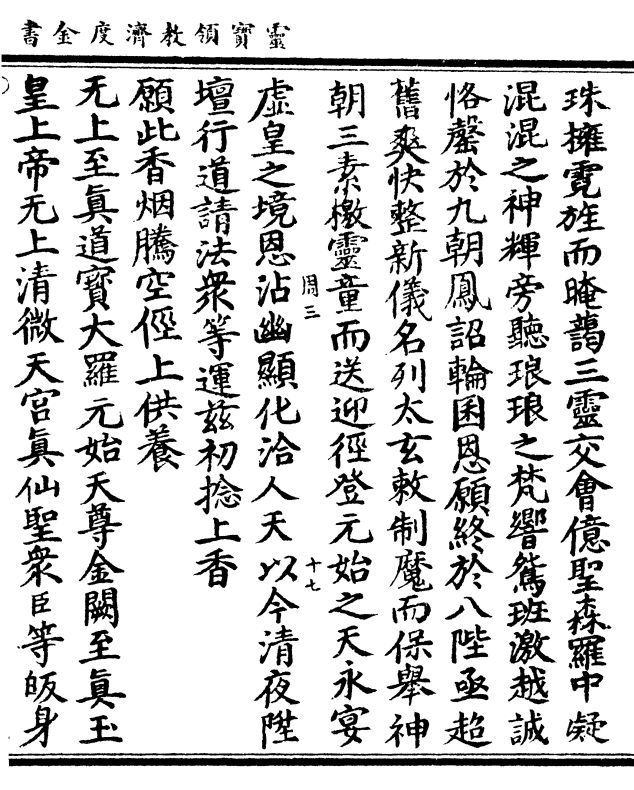 靈寶領教濟度金書
珠擁霓旌而晻藹三靈交會億聖森羅中凝
混混之神輝旁聽琅琅之梵響鴛班激越誠
恪罄於九朝鳳詔輪囷恩願終於八陛亟超
舊爽快整新儀名列太玄敕制魔而保舉神
朝三素檄靈童而送迎徑登元始之天永宴
虛皇之境恩沾幽顯化洽人天以今清夜陞
周三
十七
壇行道請法衆等運茲初捻上香
願此香烟騰空徑上供養
无上至眞道寶大羅元始天尊金闕至眞玉
皇上帝无上清微天宮眞仙聖衆臣等皈身